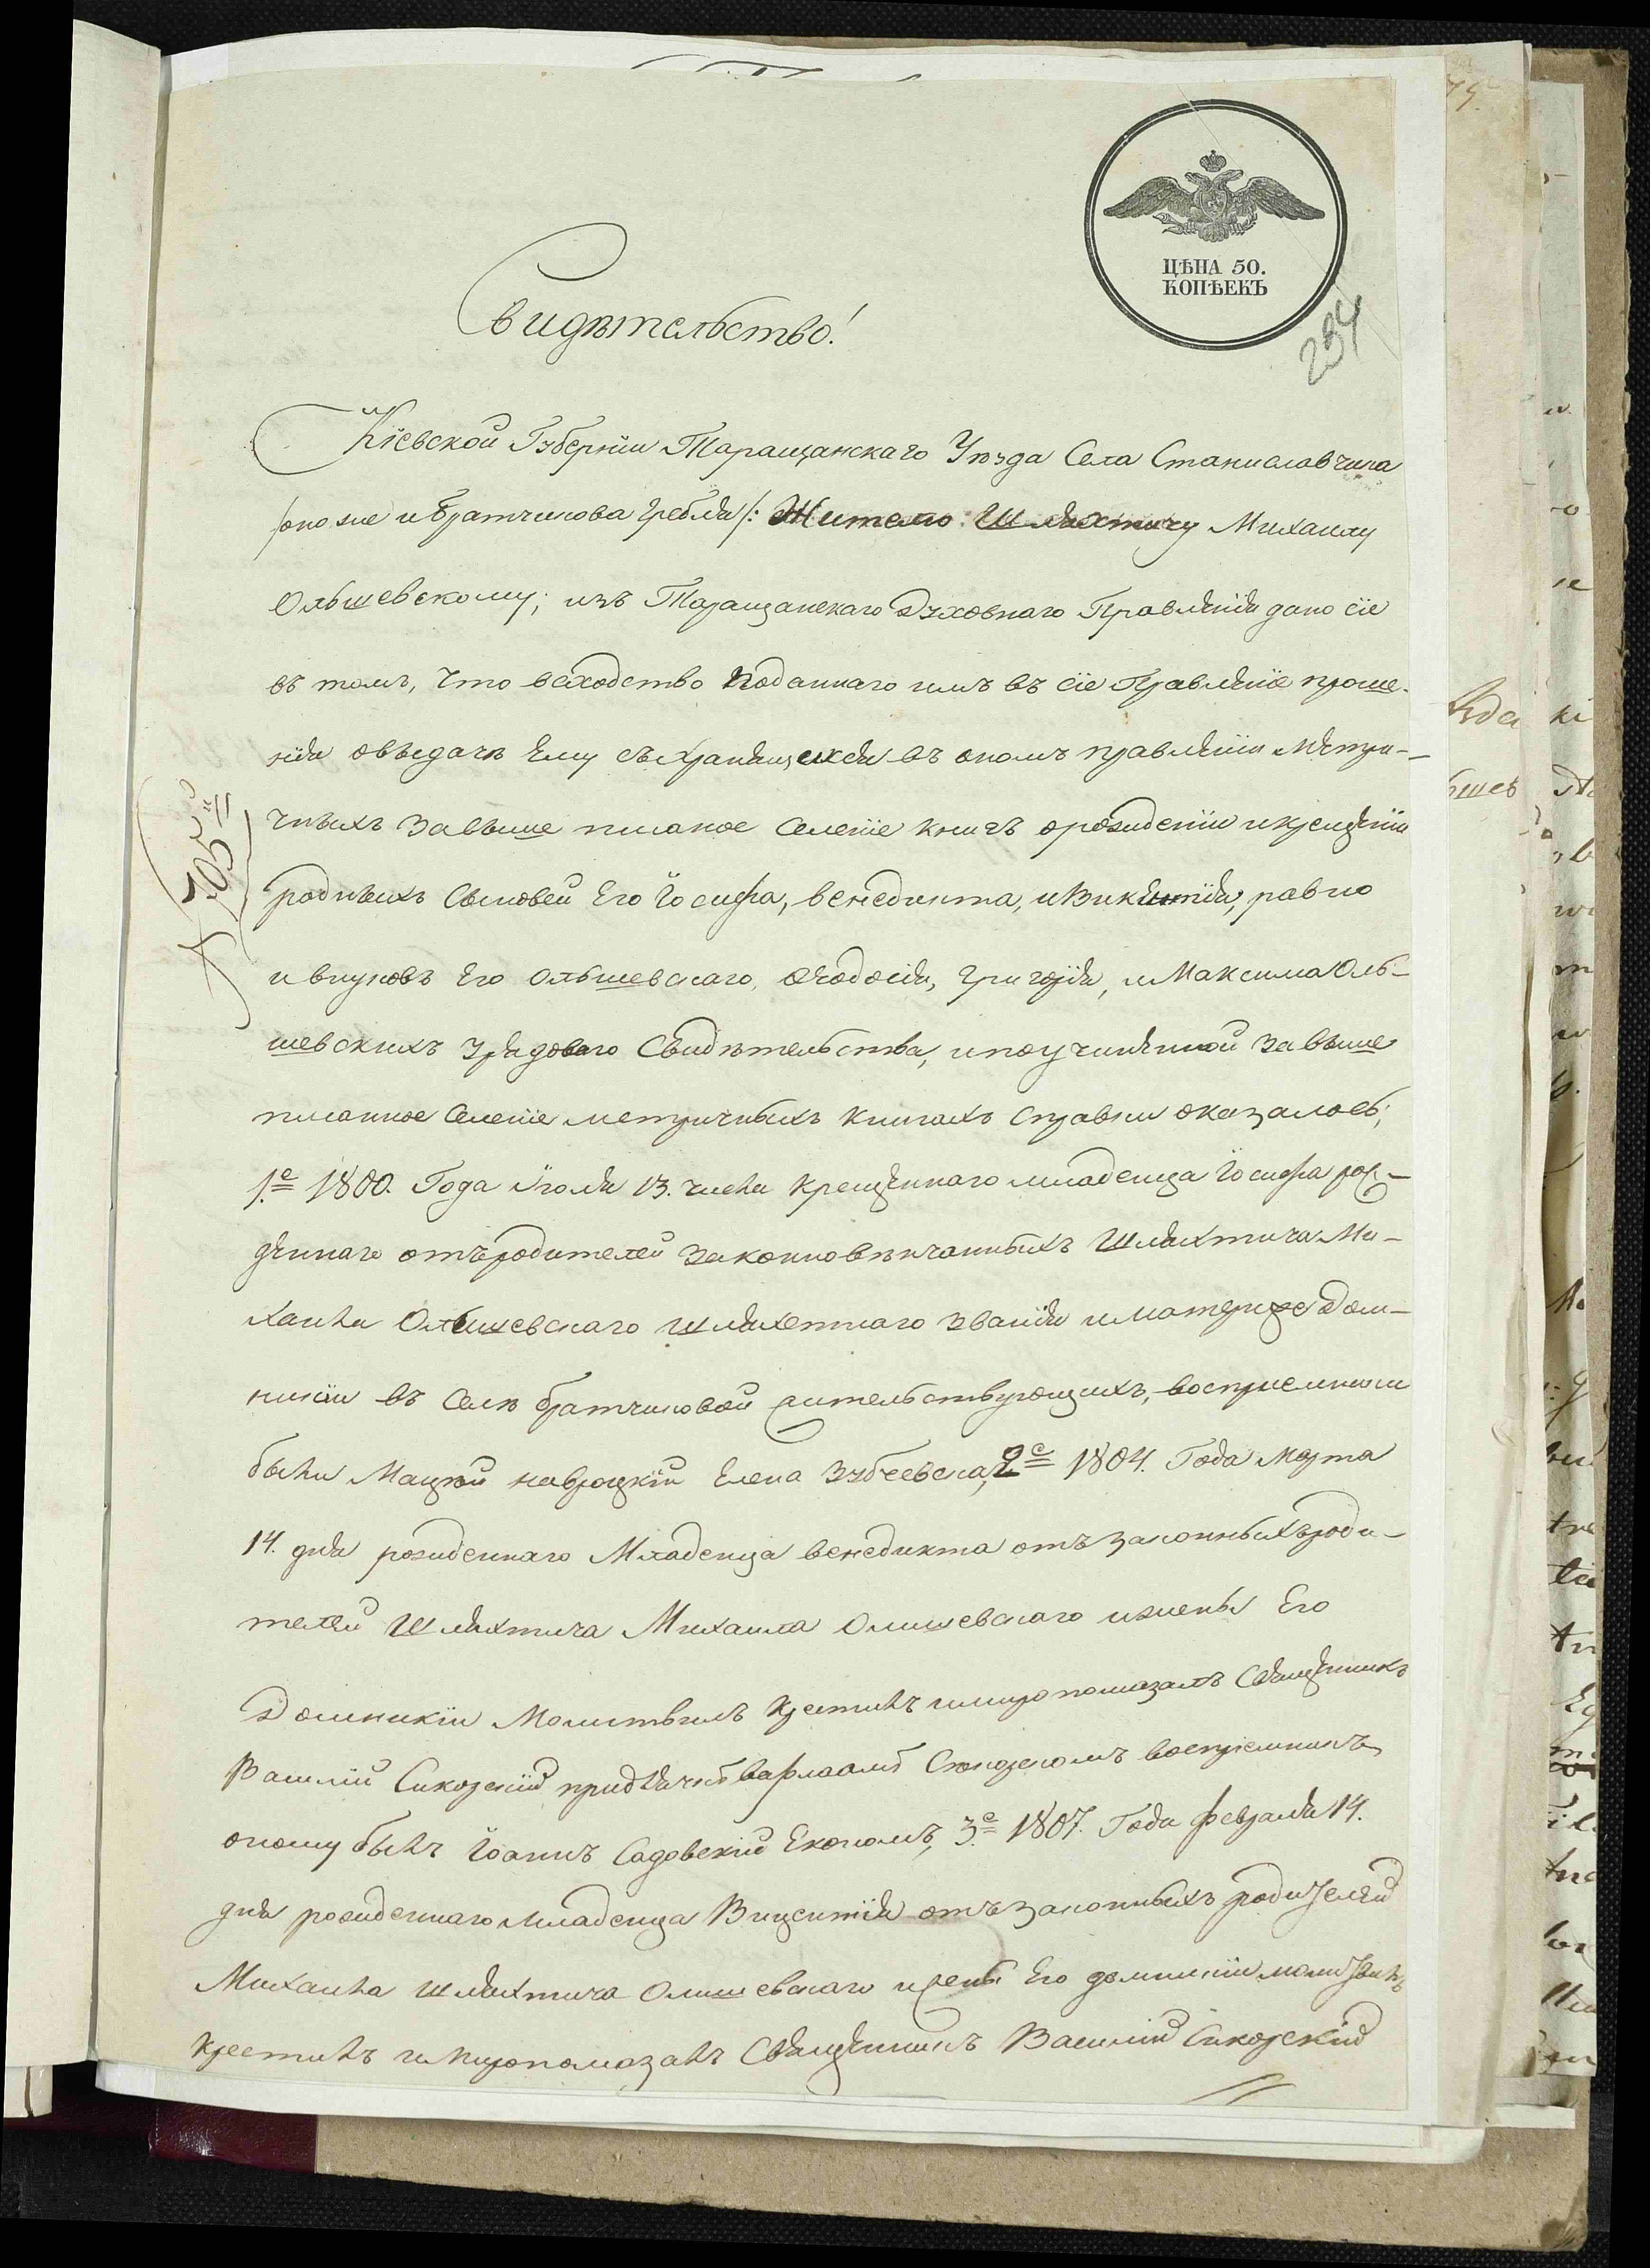 ЦѢНА 50.
КОПѢЕКЪ
234
Свидѣтельство!
Кіевской Губерніи Таращанскаго Уѣзда Села Станиславчика
/оно же и Братчикова гребля/: Жителю Шляхтичу Михаилу
Ольшевскому; изъ Таращанскаго Духовнаго Правленія дано сіе
въ томъ, что всходство поданнаго имъ въ сіе Правленіе проше-
нія овыдачѣ Ему съхранящихся въ ономъ правленіи метри-
чныхъ завыше писаное Селеніе книгъ орожденіи икрещеніи
родныхъ Сыновей Его Іосифа, венедикта, и Викентія, равно
и внуковъ Его Ольшевскаго, Ѳеодосія, григорія, и Максима Оль-
шевскихъ Урядоваго Свидѣтельства, и поучиненной завыше
писанное Селеніе метричныхъ книгахъ справки оказалось;
1.е 1800. Года Іюля 13. числа крещеннаго младенца Іосифа рож-
деннаго отъ родителей законновѣнчанныхъ Шляхтича Ми-
хаила Ольшевскаго шляхетнаго званія и матери Дом-
никіи въ Селѣ братчиковой жительствующихъ, воспріемники
были Мацѣй навроцкій Елена Зубчевска, 2.е 1804. Года марта
14. дня рожденнаго Младенца венедикта отъ законныхъ роди-
телей Шляхтича Михаила Олишевскаго ижены Его
Домникіи Молитвилъ крестилъ и миропомазалъ Священникъ
Василій Сикорскій придячкѣ варлаамѣ воспріемникъ
оному былъ Іоанъ Садовскій Економъ, 3.е 1807. Года февраля 14.
дня рожденнаго младенца Вицентія отъ законныхъ родителей
Михаила шляхтича Олишевскаго ижены Его домникіи молитвилъ
крестилъ и миропомазалъ Священникъ Василій Сикорскій